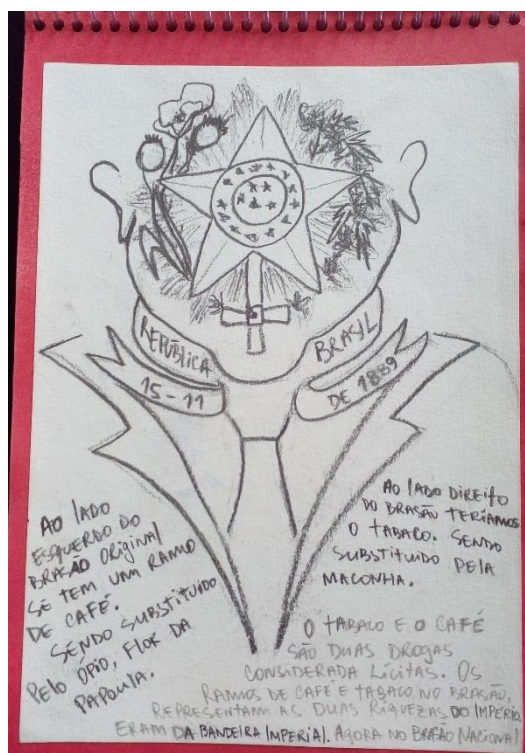 REPÚBLICA
BRASIL
15-11
DE 1889
AO lADO
ESQUERDO DO
BRASÃO ORIGINAl
SE TEM UM RAMO
DE CAFÉ.
SENDO SUBSTITUIDO
PElO ÓPIO, FLOR DA
PAPOULA.
AO lADO DIREITO
DO BRASÃO TERÍAMOS
O TABACO. SENDO
SUBSTITUIDO PELA
MACONHA.
O TABACO E O CAFÉ
SÃO DUAS DROGAS
CONSIDERADA LÍCITAS. OS
RAMOS DE CAFÉ E TABACO NO BRASÃO,
REPRESENTAM AS DUAS RIQUEZAS DO IMPÉRIO
ERAM DA BANDEIRA IMPERIAl. AGORA NO BRASÃO NACIONAl